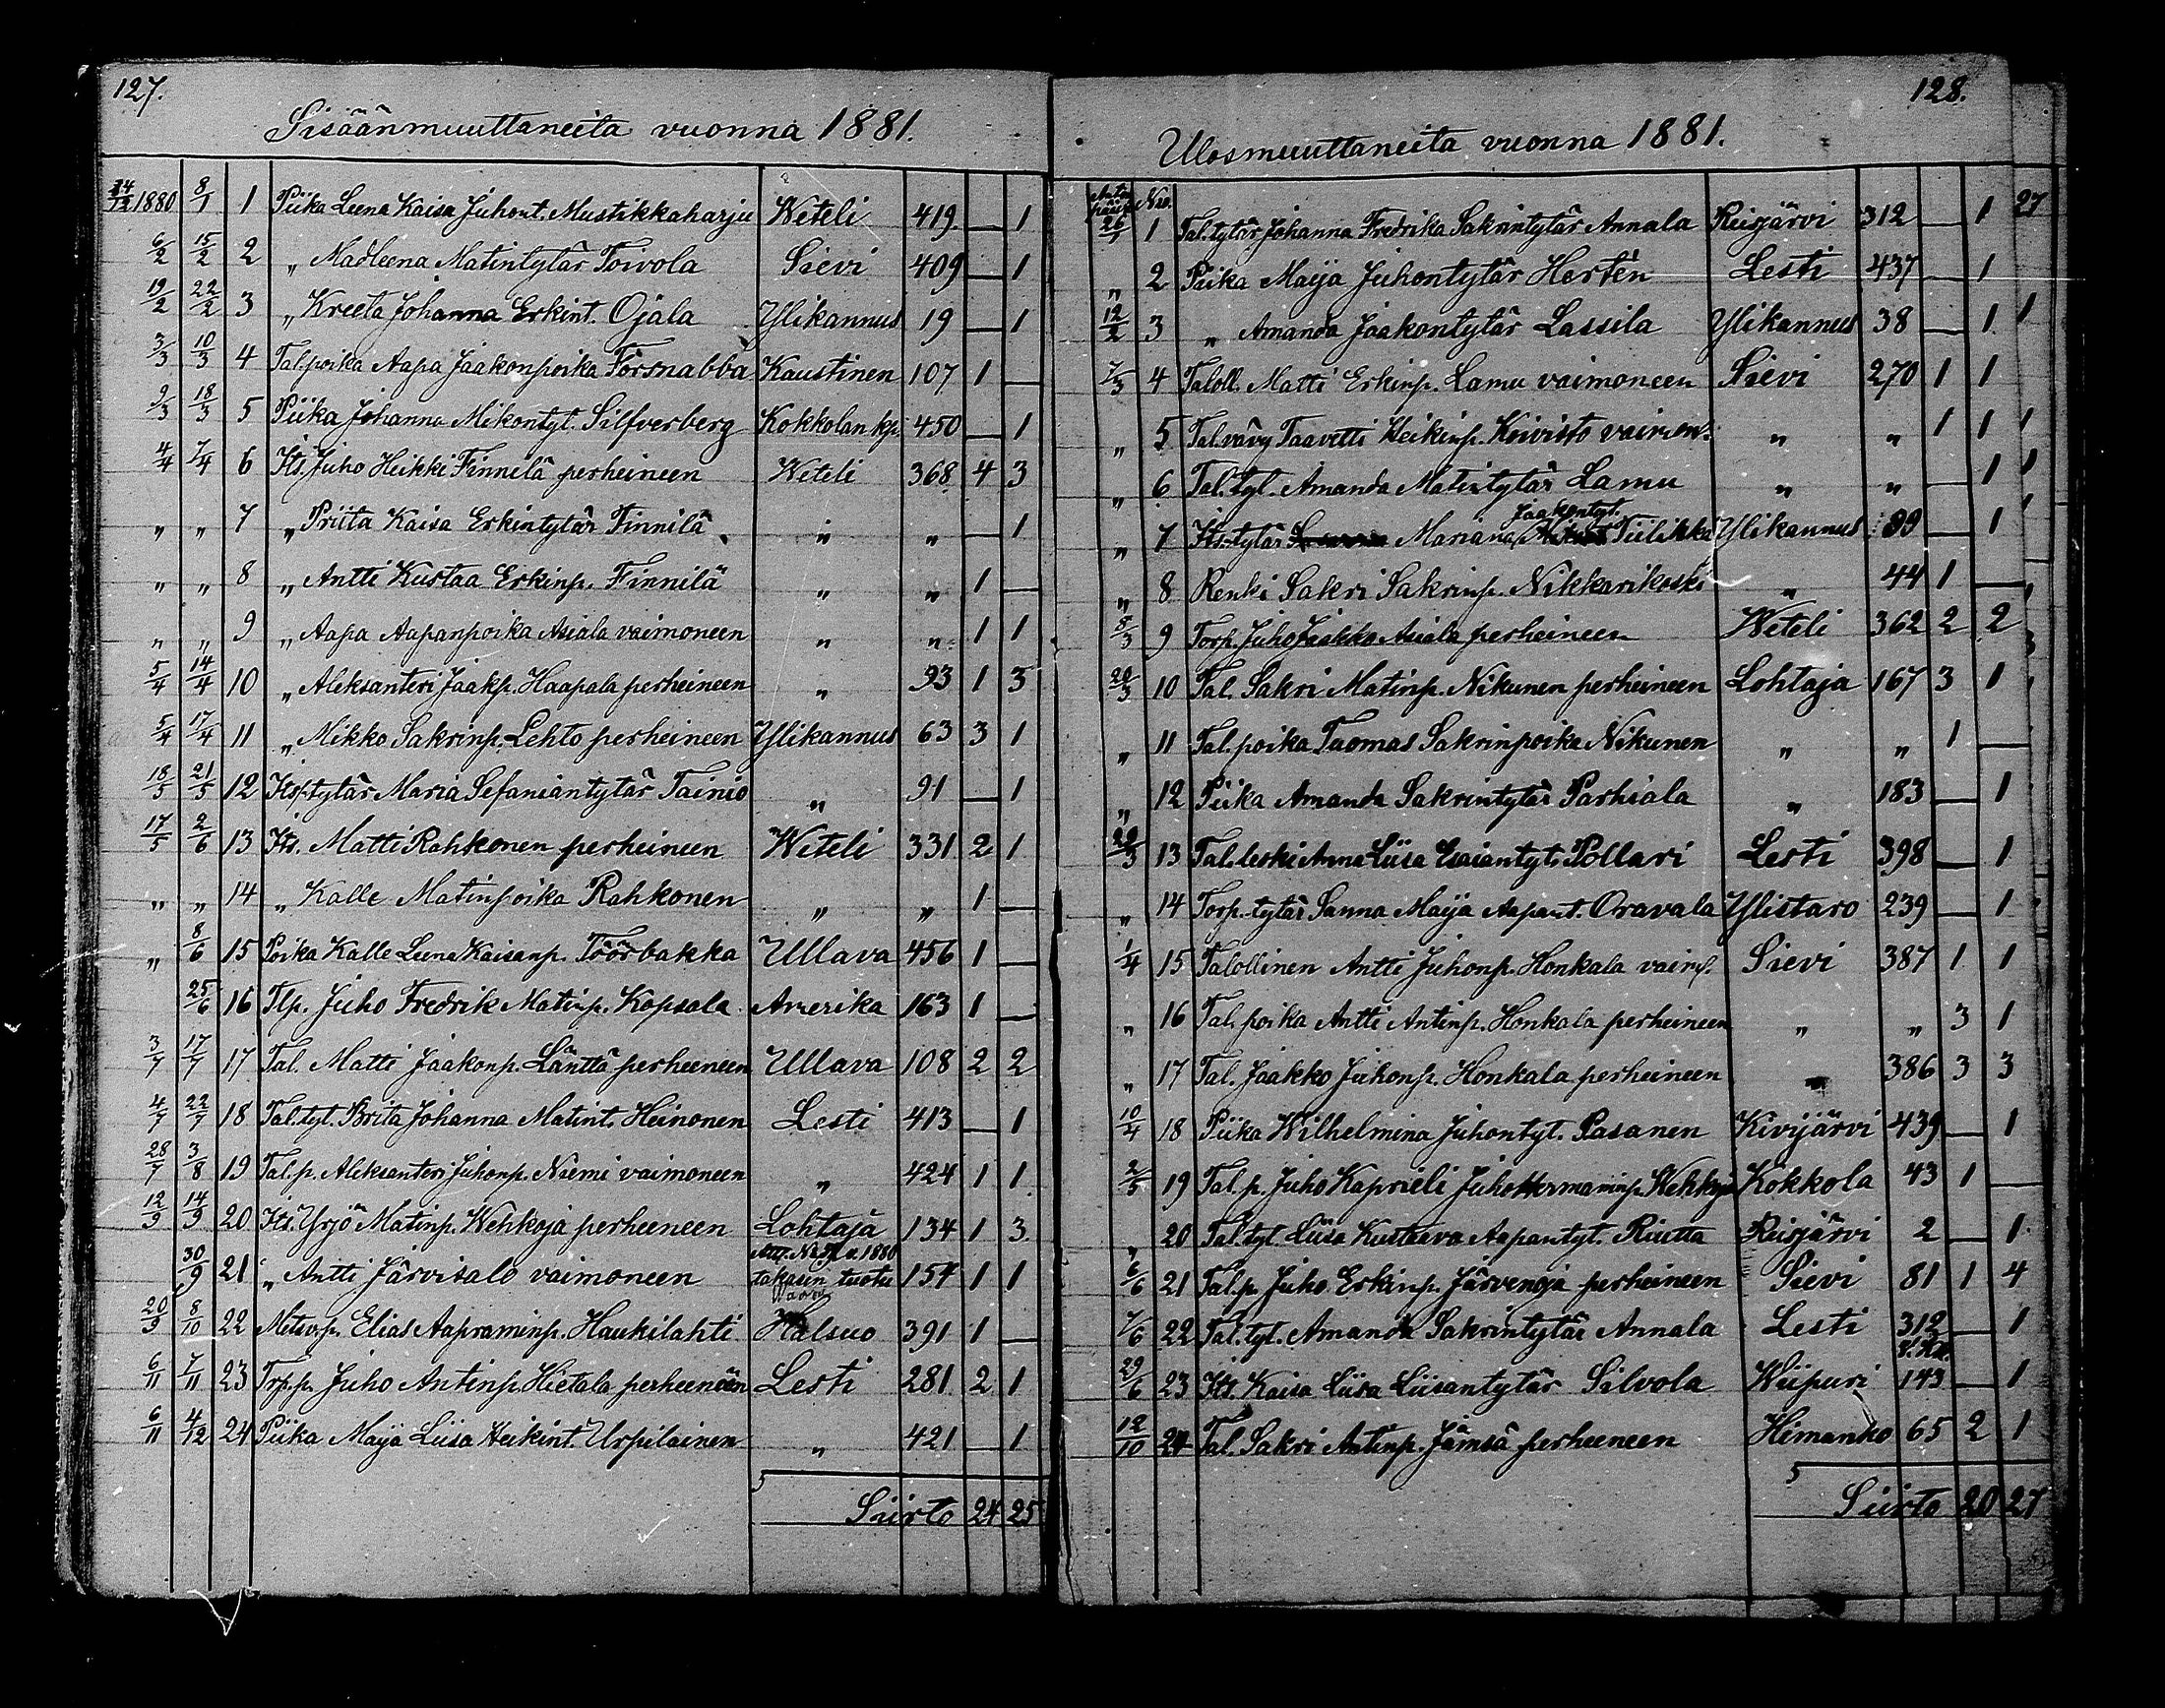 127.
Sisäänmuuttaneita vuonna 1881.
14/12 1880 8/1 1 Piika Leena Kaisa Juhont. Mustikkaharju Weteli 419 — 1
6/2 15/2 2 „ Madleena Matintytär Toivola Sievi 409 — 1
19/2 22/2 3 „ Kreeta Johanna Erkint. Ojala Ylikannus 19 — 1
3/3 10/3 4 Tal.poika Aapa Jaakonpoika Forsnabba Kaustinen 107 1 —
9/3 18/3 5 Piika Johanna Mikontyt. Silfverberg Kokkolan kp. 450 — 1
4/4 7/4 6 Its. Juho Heikki Finnilä perheineen Weteli 368 4 3
„ „ 7 „ Priita Kaisa Erkintytär Finnilä „ „ 1
„ „ 8 „ Antti Kustaa Erkinp. Finnilä „ „ 1 —
„ „ 9 „ Aapa Aapanpoika Asiala vaimoneen „ „ 1 1
5/4 14/4 10 „ Aleksanteri Jaakp. Haapala perheineen „ 93 1 3
5/4 17/4 11 „ Mikko Sakrinp. Lehto perheineen Ylikannus 63 3 1
18/5 21/5 12 Its.tytär Maria Sefaniantytär Tainio „ 91 — 1
17/5 2/6 13 Its. Matti Rahkonen perheineen Weteli 331 2 1
„ „ 14 „ Kalle Matinpoika Rahkonen „ „ 1 —
„ 8/6 15 Poika Kalle Leena Kaisanp. Töörbakka Ullava 456 1 —
25/6 16 Tlp. Juho Fredrik Matinp. Kopsala Amerika 163 1 —
3/7 17/7 17 Tal. Matti Jaakonp. Länttä perheeneen Ullava 108 2 2
4/7 22/7 18 Tal.tyt. Brita Johanna Matint. Heinonen Lesti 413 — 1
28/7 3/8 19 Tal.p. Aleksanteri Juhonp. Niemi vaimoneen „ 424 1 1
12/9 14/9 20 Its. Yrjö Matinp. Wehkoja perheeneen Lohtaja 134 1 3
30/9 21 „ Antti Järvisalo vaimoneen takasin tuotu 154 1 1
20/9 8/10 22 Metsv.p. Elias Aapraminp. Haukilahti Halsuo 391 1 —
6/11 7/11 23 Trp.p. Juho Antinp. Hietala perheeneen Lesti 281 2 1
6/11 4/12 24 Piika Maija Liisa Heikint. Urpilainen „ 421 — 1
Siirto 24 25
128.
Ulosmuuttaneita vuonna 1881.
Nro.
26/1 1 Tal.tytär Johanna Fredrika Sakrintytär Annala Reisjärvi 312 — 1 27
„ 2 Piika Maija Juhontytär Hertén Lesti 437 — 1
12/2 3 „ Amanda Jaakontytär Lassila Ylikannus 38 — 1 1
7/3 4 Taloll. Matti Erkinp. Lamu vaimoneen Sievi 270 1 1
„ 5 Tal.vävy Taavetti Heikinp. Koivisto vaimon. „ „ 1 1 1
„ 6 Tal.tyt. Amanda Matintytär Lamu „ „ — 1 1
Jaakontyt.
„ 7 Its.tytär Mariana Tiilikka Ylikannus 89 — 1
„ 8 Renki Sakri Sakrinp. Nikkarikoski „ 44 1 —
8/3 9 Torp. Juho Jaakko Asiala perheineen Weteli 362 2 2
20/3 10 Tal. Sakri Matinp. Nikunen perheineen Lohtaja 167 3 1
„ 11 Tal.poika Tuomas Sakrinpoika Nikunen „ „ 1 —
„ 12 Piika Amanda Sakrintytär Parhiala „ 183 — 1
29/3 13 Tal.leski Anna Liisa Esaiantyt. Pollari Lesti 398 — 1
„ 14 Torp.tytär Sanna Maija Aapant. Oravala Ylistaro 239 — 1
1/4 15 Talollinen Antti Juhonp. Honkala vaim. Sievi 387 1 1
„ 16 Tal.poika Antti Antinp. Honkala perheineen „ „ 3 1
„ 17 Tal. Jaakko Juhonp. Honkala perheineen „ 386 3 3
10/4 18 Piika Wilhelmina Juhontyt. Pasanen Kivijärvi 439 — 1
2/5 19 Tal.p. Juho Kaprieli Juho Hermaninp. Wehkoja Kokkola 43 1 —
„ 20 Tal.tyt. Liisa Kustaava Aapantyt. Riutta Reisjärvi 2 — 1
6/6 21 Tal.p. Juho Erkinp. Järvenoja perheineen Sievi 81 1 4
7/6 22 Tal.tyt. Amanda Sakrintytär Annala Lesti 312 — 1
29/6 23 Its. Kaisa Liisa Liisantytär Silvola Wiipuri 143 — 1
12/10 24 Tal. Sakri Antinp. Jämsä perheeneen Himanko 65 2 1
Siirto 20 27